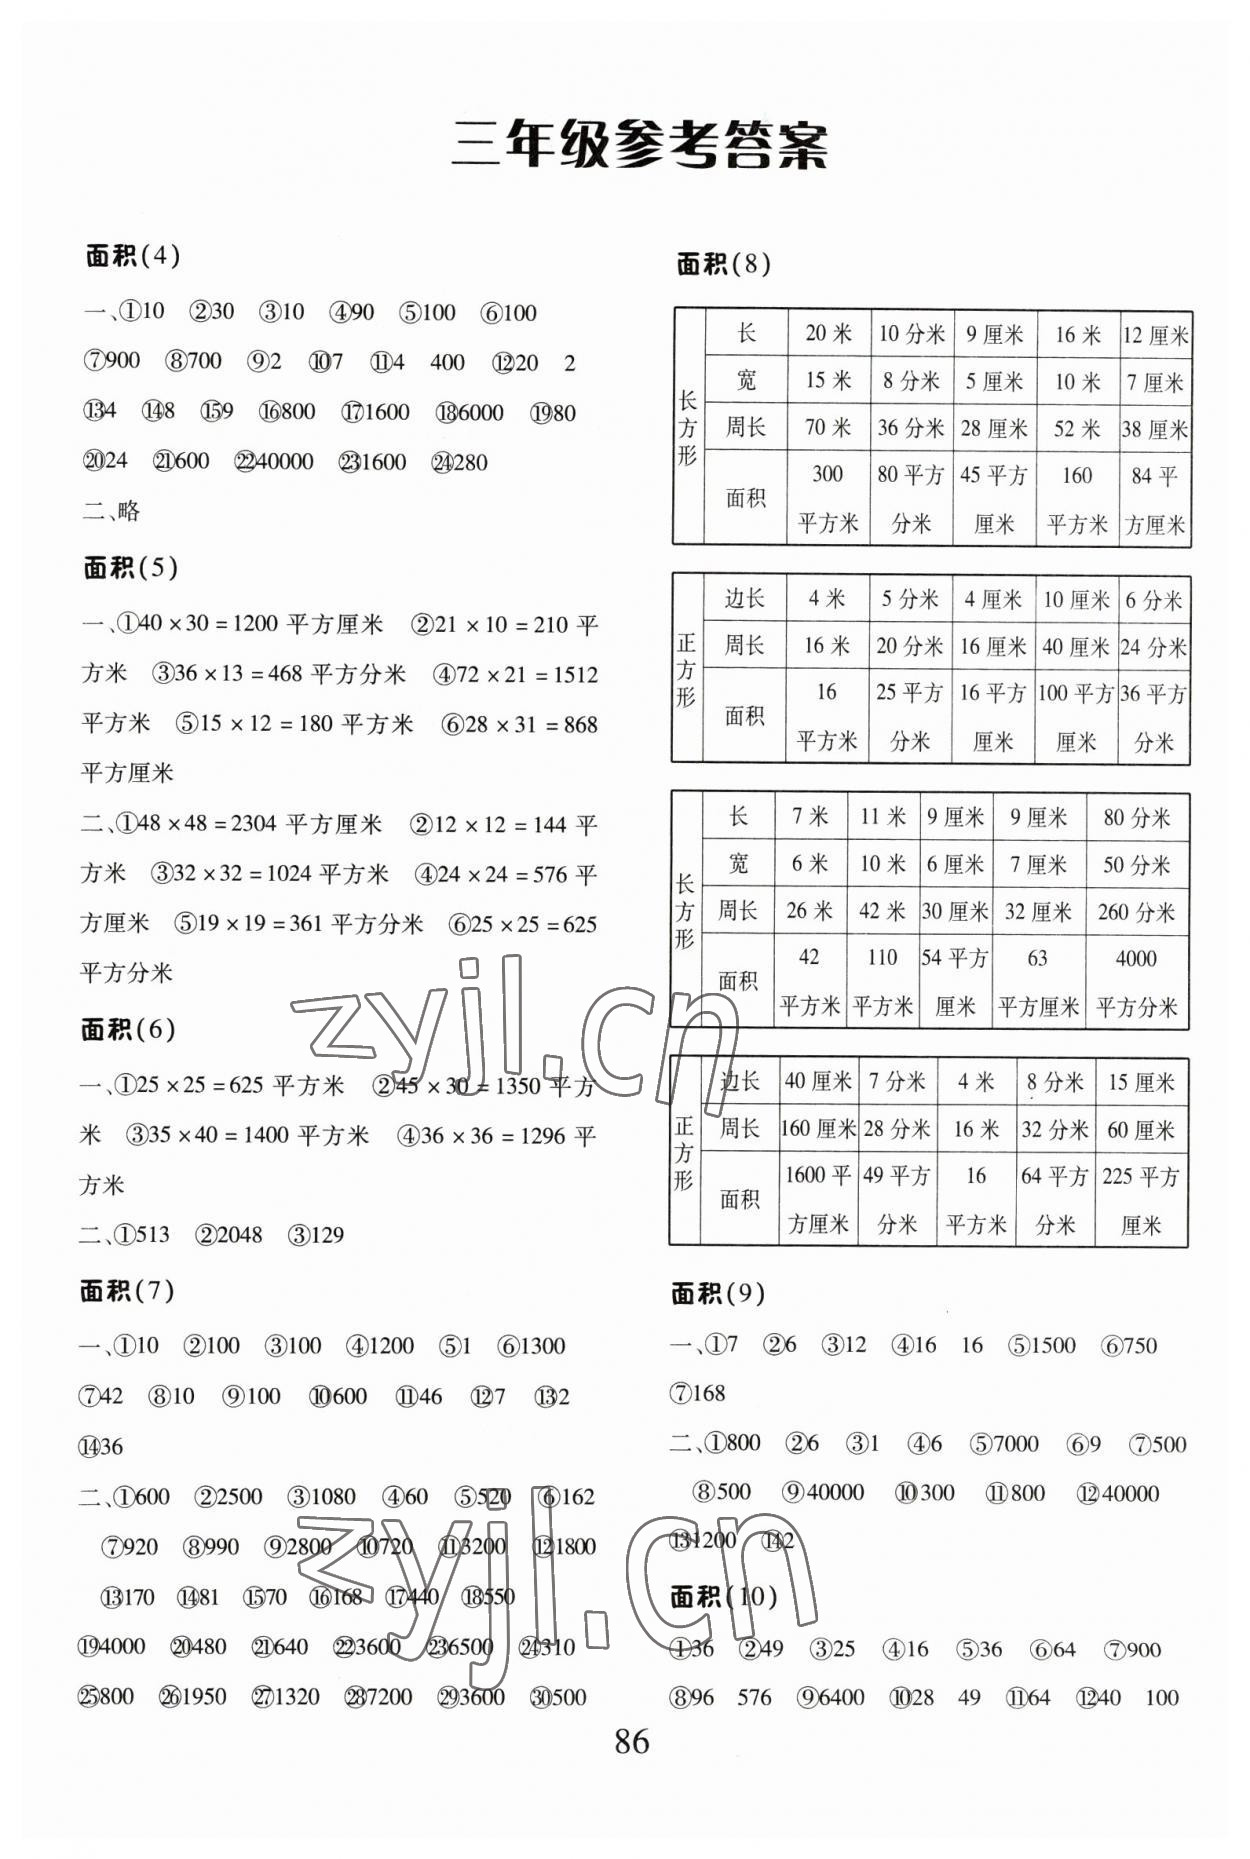 三年级参考答案
面积(4)
一、①10 ②30 ③10 ④90 ⑤100 ⑥100
⑦900 ⑧700 ⑨2 ⑩7 ⑪4 400 ⑫20 2
⑬4 ⑭8 ⑮9 ⑯800 ⑰1600 ⑱6000 ⑲80
⑳24 ㉑600 ㉒40000 ㉓1600 ㉔280
二、略
面积(5)
一、①40×30=1200 平方厘米 ②21×10=210 平
方米 ③36×13=468 平方分米 ④72×21=1512
平方米 ⑤15×12=180 平方米 ⑥28×31=868
平方厘米
二、①48×48=2304 平方厘米 ②12×12=144 平
方米 ③32×32=1024 平方米 ④24×24=576 平
方厘米 ⑤19×19=361 平方分米 ⑥25×25=625
平方分米
面积(6)
一、①25×25=625 平方米 ②45×30=1350 平方
米 ③35×40=1400 平方米 ④36×36=1296 平
方米
二、①513 ②2048 ③129
面积(7)
一、①10 ②100 ③100 ④1200 ⑤1 ⑥1300
⑦42 ⑧10 ⑨100 ⑩600 ⑪46 ⑫7 ⑬2
⑭36
二、①600 ②2500 ③1080 ④60 ⑤520 ⑥162
⑦920 ⑧990 ⑨2800 ⑩720 ⑪3200 ⑫1800
⑬170 ⑭81 ⑮70 ⑯168 ⑰440 ⑱550
⑲4000 ⑳480 ㉑640 ㉒3600 ㉓6500 ㉔310
㉕800 ㉖1950 ㉗1320 ㉘7200 ㉙3600 ㉚500
面积(8)
长方形
长 20 米 10 分米 9 厘米 16 米 12 厘米
宽 15 米 8 分米 5 厘米 10 米 7 厘米
周长 70 米 36 分米 28 厘米 52 米 38 厘米
面积 300 平方米 80 平方分米 45 平方厘米 160 平方米 84 平方厘米
正方形
边长 4 米 5 分米 4 厘米 10 厘米 6 分米
周长 16 米 20 分米 16 厘米 40 厘米 24 分米
面积 16 平方米 25 平方分米 16 平方厘米 100 平方厘米 36 平方分米
长方形
长 7 米 11 米 9 厘米 9 厘米 80 分米
宽 6 米 10 米 6 厘米 7 厘米 50 分米
周长 26 米 42 米 30 厘米 32 厘米 260 分米
面积 42 平方米 110 平方米 54 平方厘米 63 平方厘米 4000 平方分米
正方形
边长 40 厘米 7 分米 4 米 8 分米 15 厘米
周长 160 厘米 28 分米 16 米 32 分米 60 厘米
面积 1600 平方厘米 49 平方分米 16 平方米 64 平方分米 225 平方厘米
面积(9)
一、①7 ②6 ③12 ④16 16 ⑤1500 ⑥750
⑦168
二、①800 ②6 ③1 ④6 ⑤7000 ⑥9 ⑦500
⑧500 ⑨40000 ⑩300 ⑪800 ⑫40000
⑬1200 ⑭2
面积(10)
①36 ②49 ③25 ④16 ⑤36 ⑥64 ⑦900
⑧96 576 ⑨6400 ⑩28 49 ⑪64 ⑫40 100
86
zyjl.cn
zyjl.cn